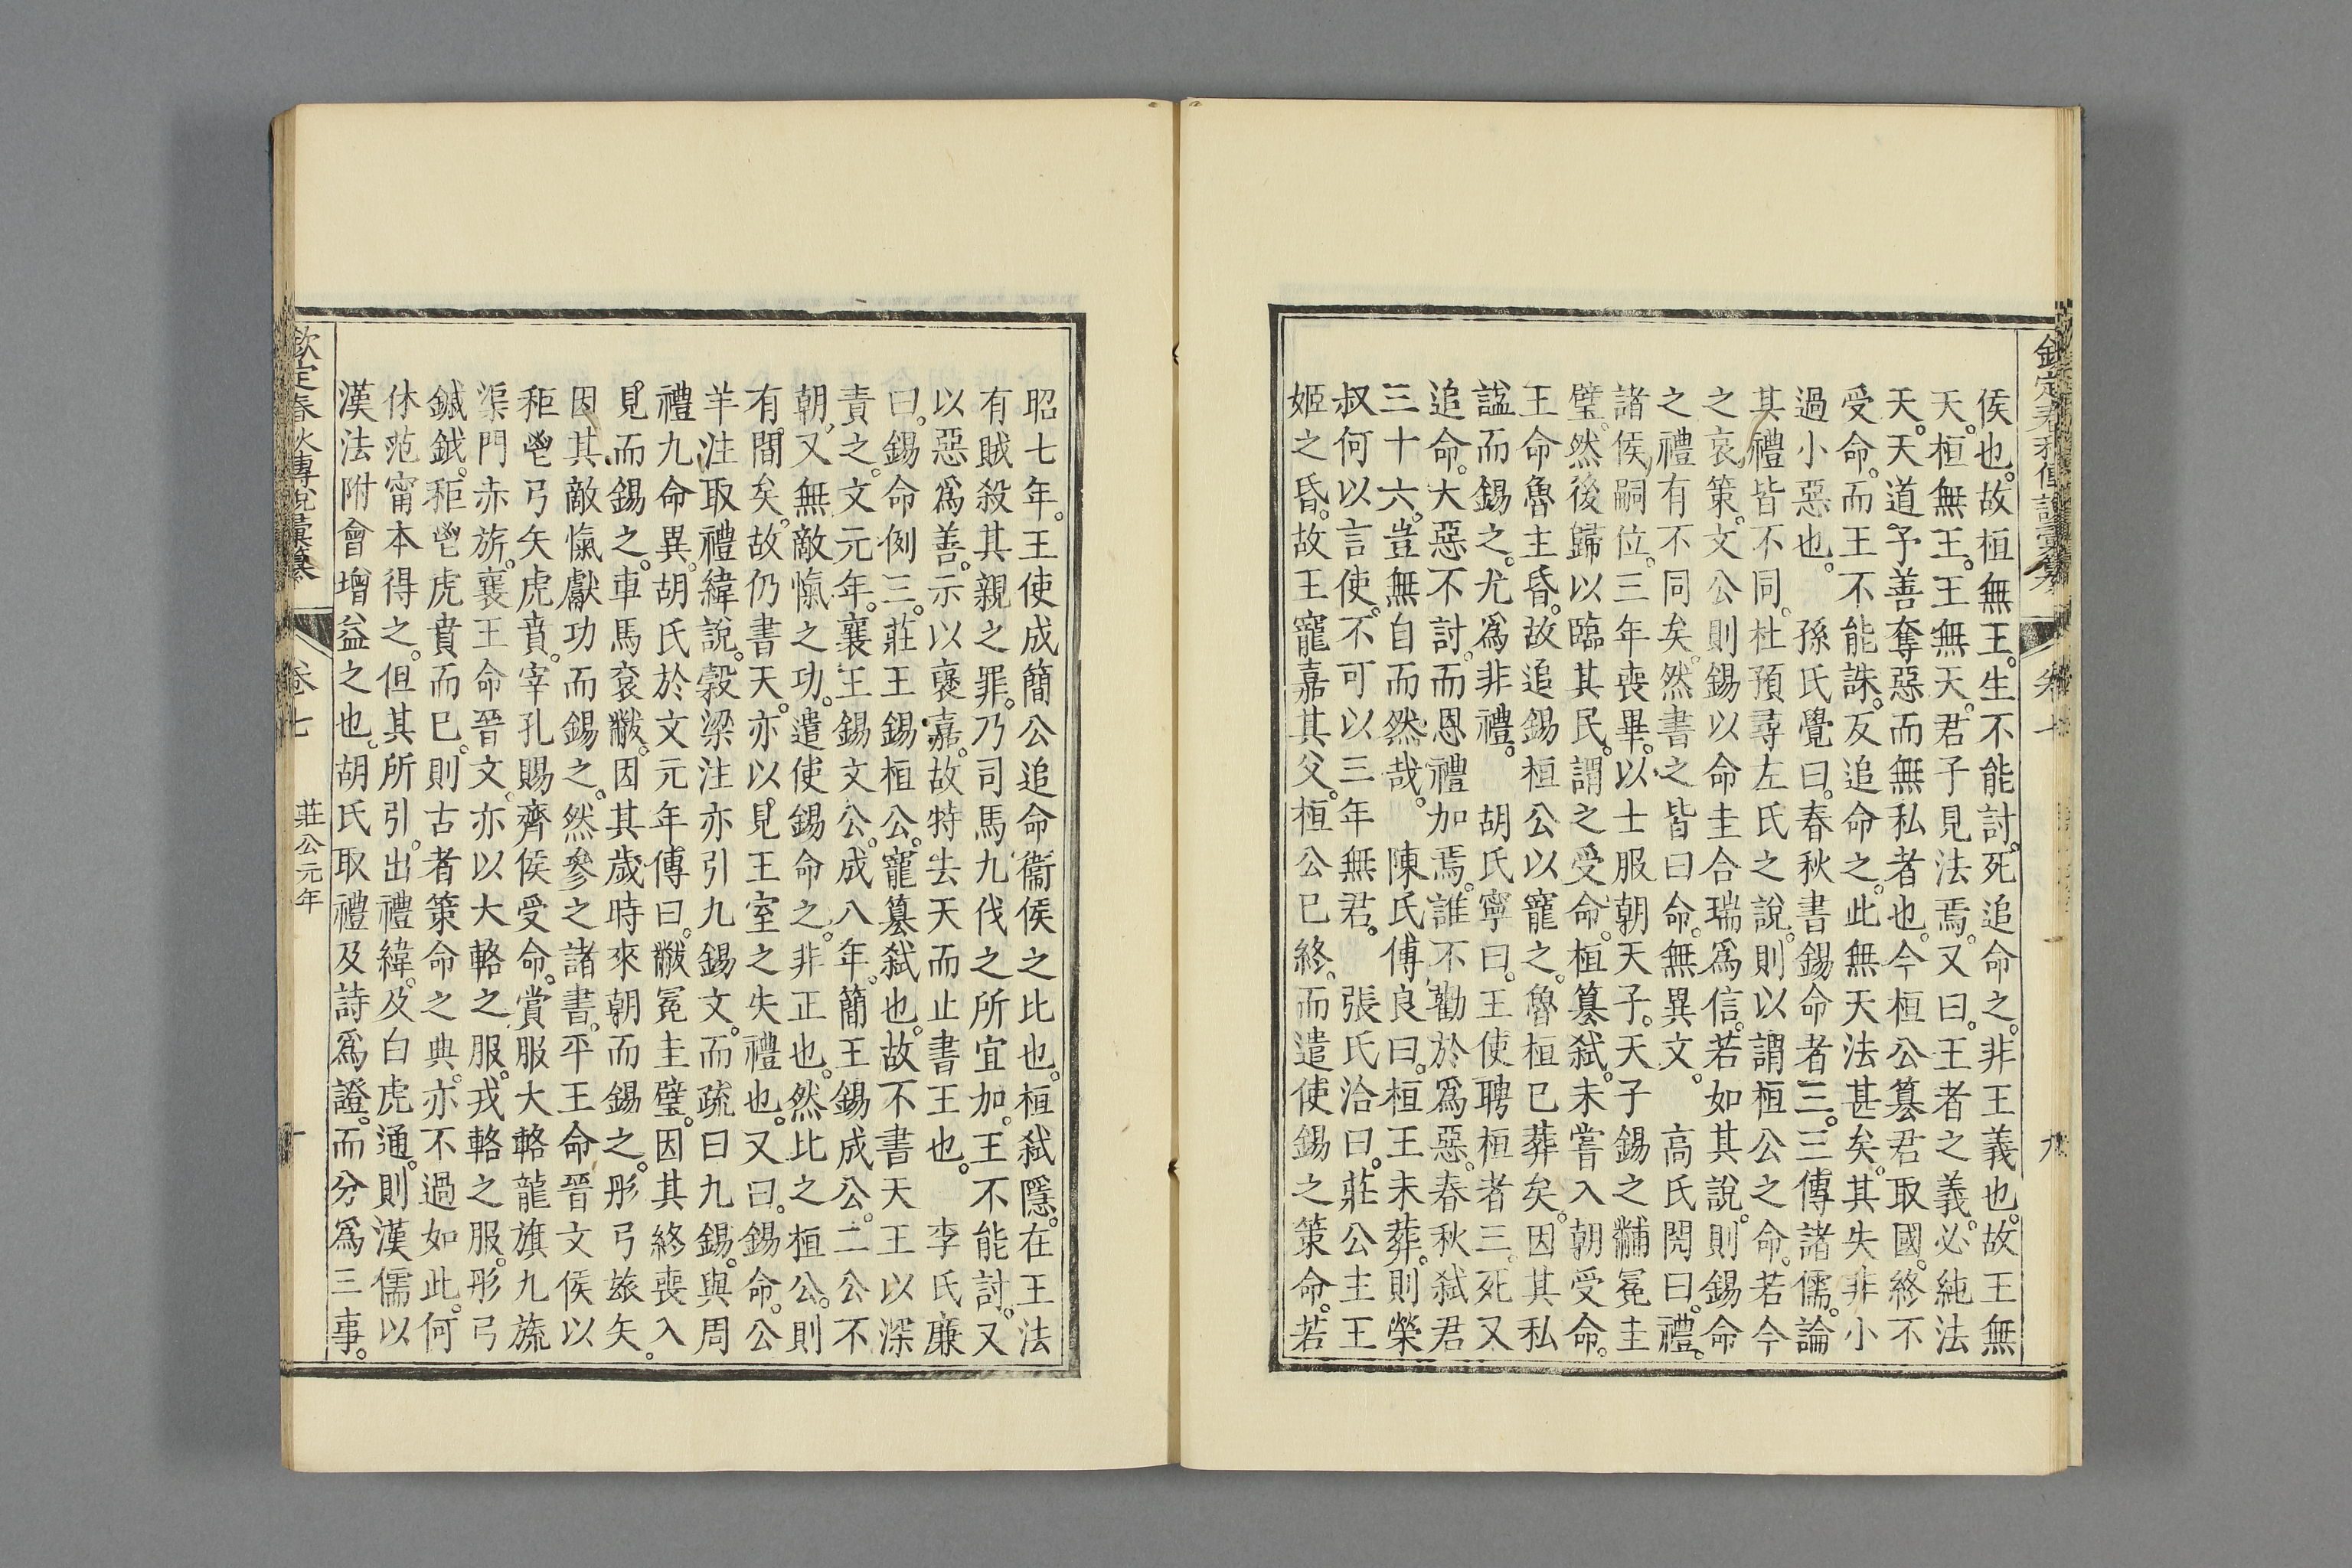 侯也。故桓無王。生不能討。死追命之。非王義也。故王無
天。桓無王。王無天。君子見法焉。又曰。王者之義。必純法
天。天道予善奪惡而無私者也。今桓公簒君取國。終不
受命。而王不能誅。反追命之。此無天法甚矣。其失非小
過小惡也。　孫氏覺曰。春秋書錫命者三。三傳諸儒。論
其禮皆不同。杜預尋左氏之說。則以謂桓公之命。若今
之哀策。文公則錫以命圭合瑞爲信。若如其說。則錫命
之禮有不同矣。然書之皆曰命。無異文。　高氏閌曰。禮。
諸侯嗣位。三年喪畢。以士服朝天子。天子錫之黼冕圭
璧。然後歸以臨其民。謂之受命。桓簒弑。未嘗入朝受命。
王命魯主昏。故追錫桓公以寵之。魯桓已葬矣。因其私
諡而錫之。尤爲非禮。　胡氏寧曰。王使聘桓者三。死又
追命。大惡不討。而恩禮加焉。誰不勸於爲惡。春秋弑君
三十六。豈無自而然哉。　陳氏傅良曰。桓王未葬。則榮
叔何以言使。不可以三年無君。　張氏洽曰。莊公主王
姬之昏。故王寵嘉其父。桓公已終。而遣使錫之策命。若
昭七年。王使成簡公追命衞侯之比也。桓弑隱。在王法
有賊殺其親之罪。乃司馬九伐之所宜加。王不能討。又
以惡爲善。示以褒嘉。故特去天而止書王也。　李氏廉
曰。錫命例三。莊王錫桓公。寵簒弑也。故不書天王以深
責之。文元年。襄王錫文公。成八年。簡王錫成公。二公不
朝。又無敵愾之功。遣使錫命之。非正也。然比之桓公。則
有閒矣。故仍書天。亦以見王室之失禮也。又曰。錫命。公
羊注取禮緯說。穀梁注亦引九錫文。而疏曰九錫。與周
禮九命異。胡氏於文元年傳曰。黻冕圭璧。因其終喪入
見而錫之。車馬袞黻。因其歲時來朝而錫之。彤弓玈矢。
因其敵愾獻功而錫之。然參之諸書。平王命晉文侯以
秬鬯弓矢虎賁。宰孔賜齊侯受命。賞服大輅龍旗九旒
渠門赤旂。襄王命晉文。亦以大輅之服。戎輅之服。彤弓
鏚鉞。秬鬯虎賁而已。則古者策命之典。亦不過如此。何
休范甯本得之。但其所引。出禮緯。及白虎通。則漢儒以
漢法附會增益之也。胡氏取禮及詩爲證。而分爲三事。
欽定春秋傳說彙纂　卷七　莊公元年